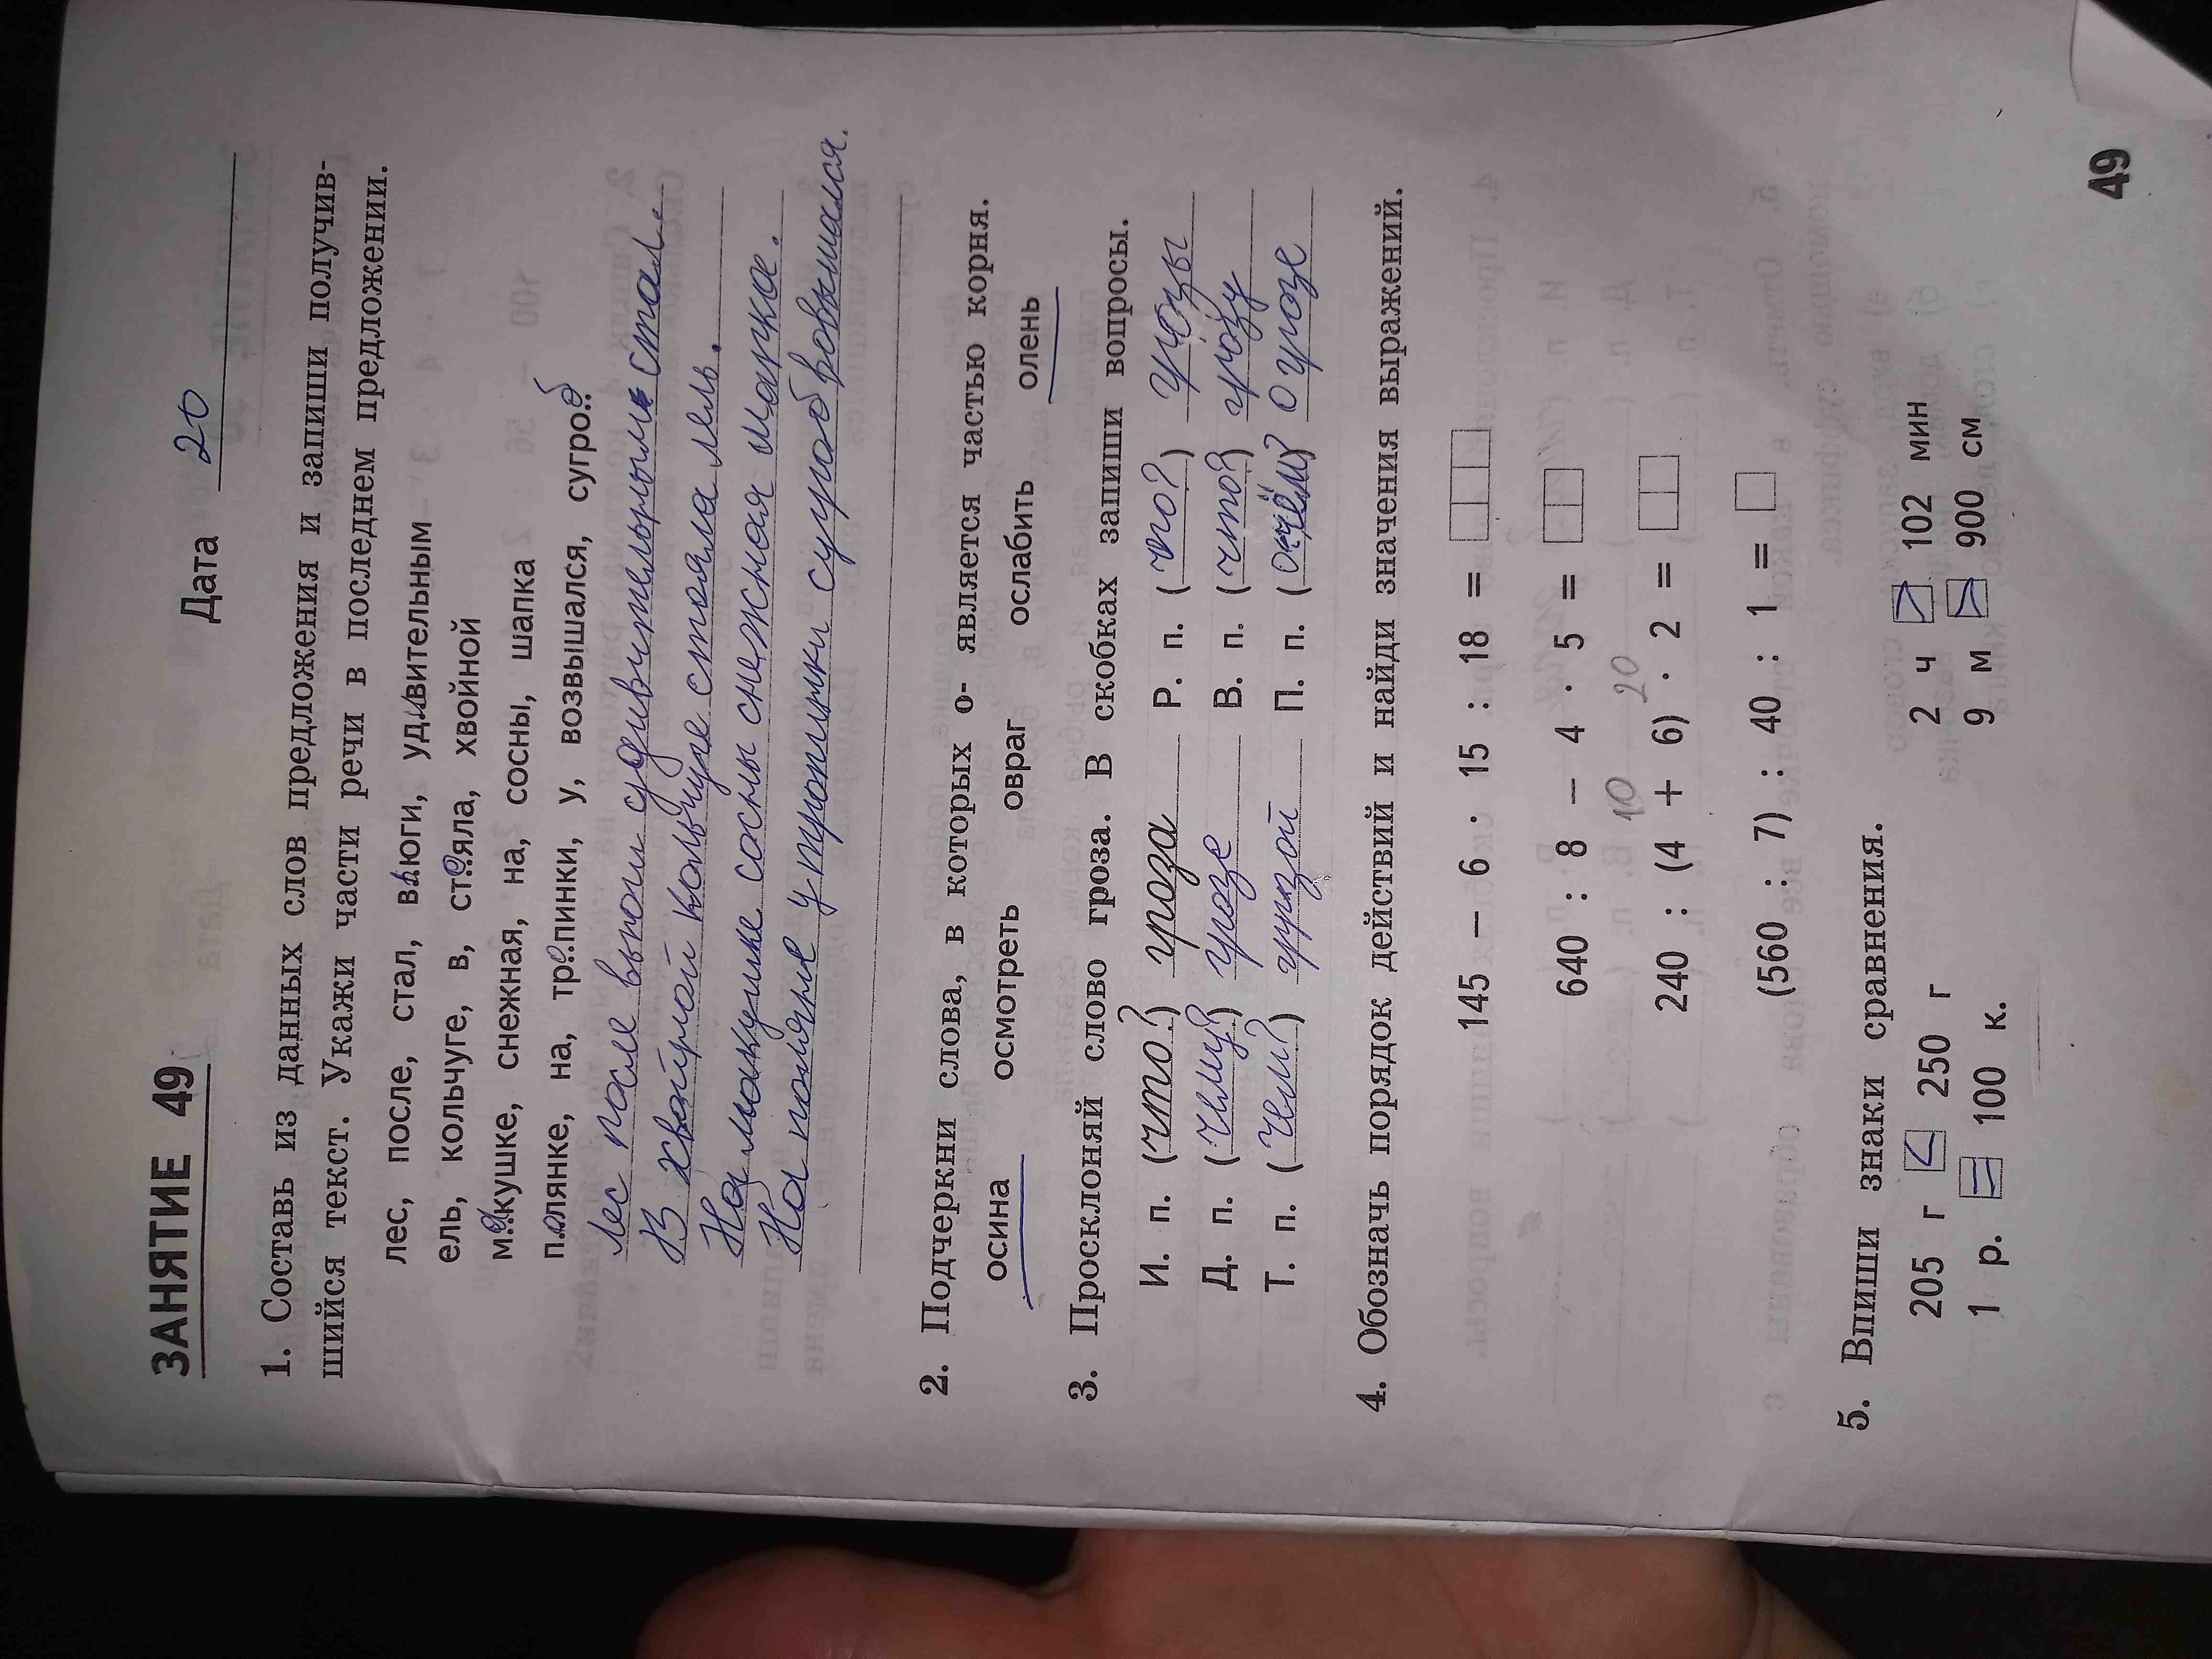 ЗАНЯТИЕ 49 Дата 20
1. Составь из данных слов предложения и запиши получив-
шийся текст. Укажи части речи в последнем предложении.
лес, после, стал, вьюги, удивительным
ель, кольчуге, в, стояла, хвойной
макушке, снежная, на, сосны, шапка
полянке, на, тропинки, у, возвышался, сугроб
Лес после вьюги удивительным стал.
В хвойной кольчуге стояла ель.
На макушке сосны снежная шапка.
На полянке у тропинки сугроб возвышался.
2. Подчеркни слова, в которых о- является частью корня.
осина осмотреть овраг ослабить олень
3. Просклоняй слово гроза. В скобках запиши вопросы.
И. п. (что?) гроза Р. п. (что?) грозы
Д. п. (чему?) грозе В. п. (что?) грозу
Т. п. (чем?) грзой П. п. (очём?) о грозе
4. Обозначь порядок действий и найди значения выражений.
145 − 6 · 15 : 18 =
640 : 8 − 4 · 5 =
10 20
240 : (4 + 6) · 2 =
(560 : 7) : 40 : 1 =
5. Впиши знаки сравнения.
205 г < 250 г 2 ч > 102 мин
1 р. = 100 к. 9 м > 900 см
49